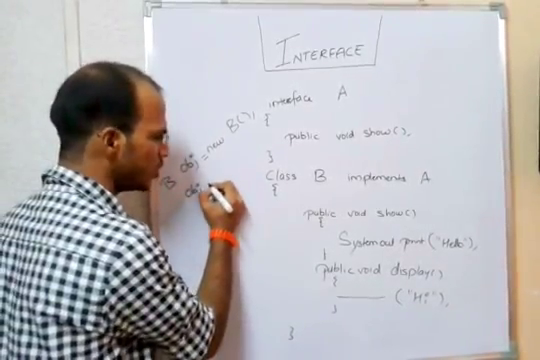 INTERFACE
interface A
{
public void show();
}
Class B implements A
{
public void show()
{
System.out.print("Hello");
}
public void display()
{
———— ("Hi");
}
}
B obj = new B();
obj